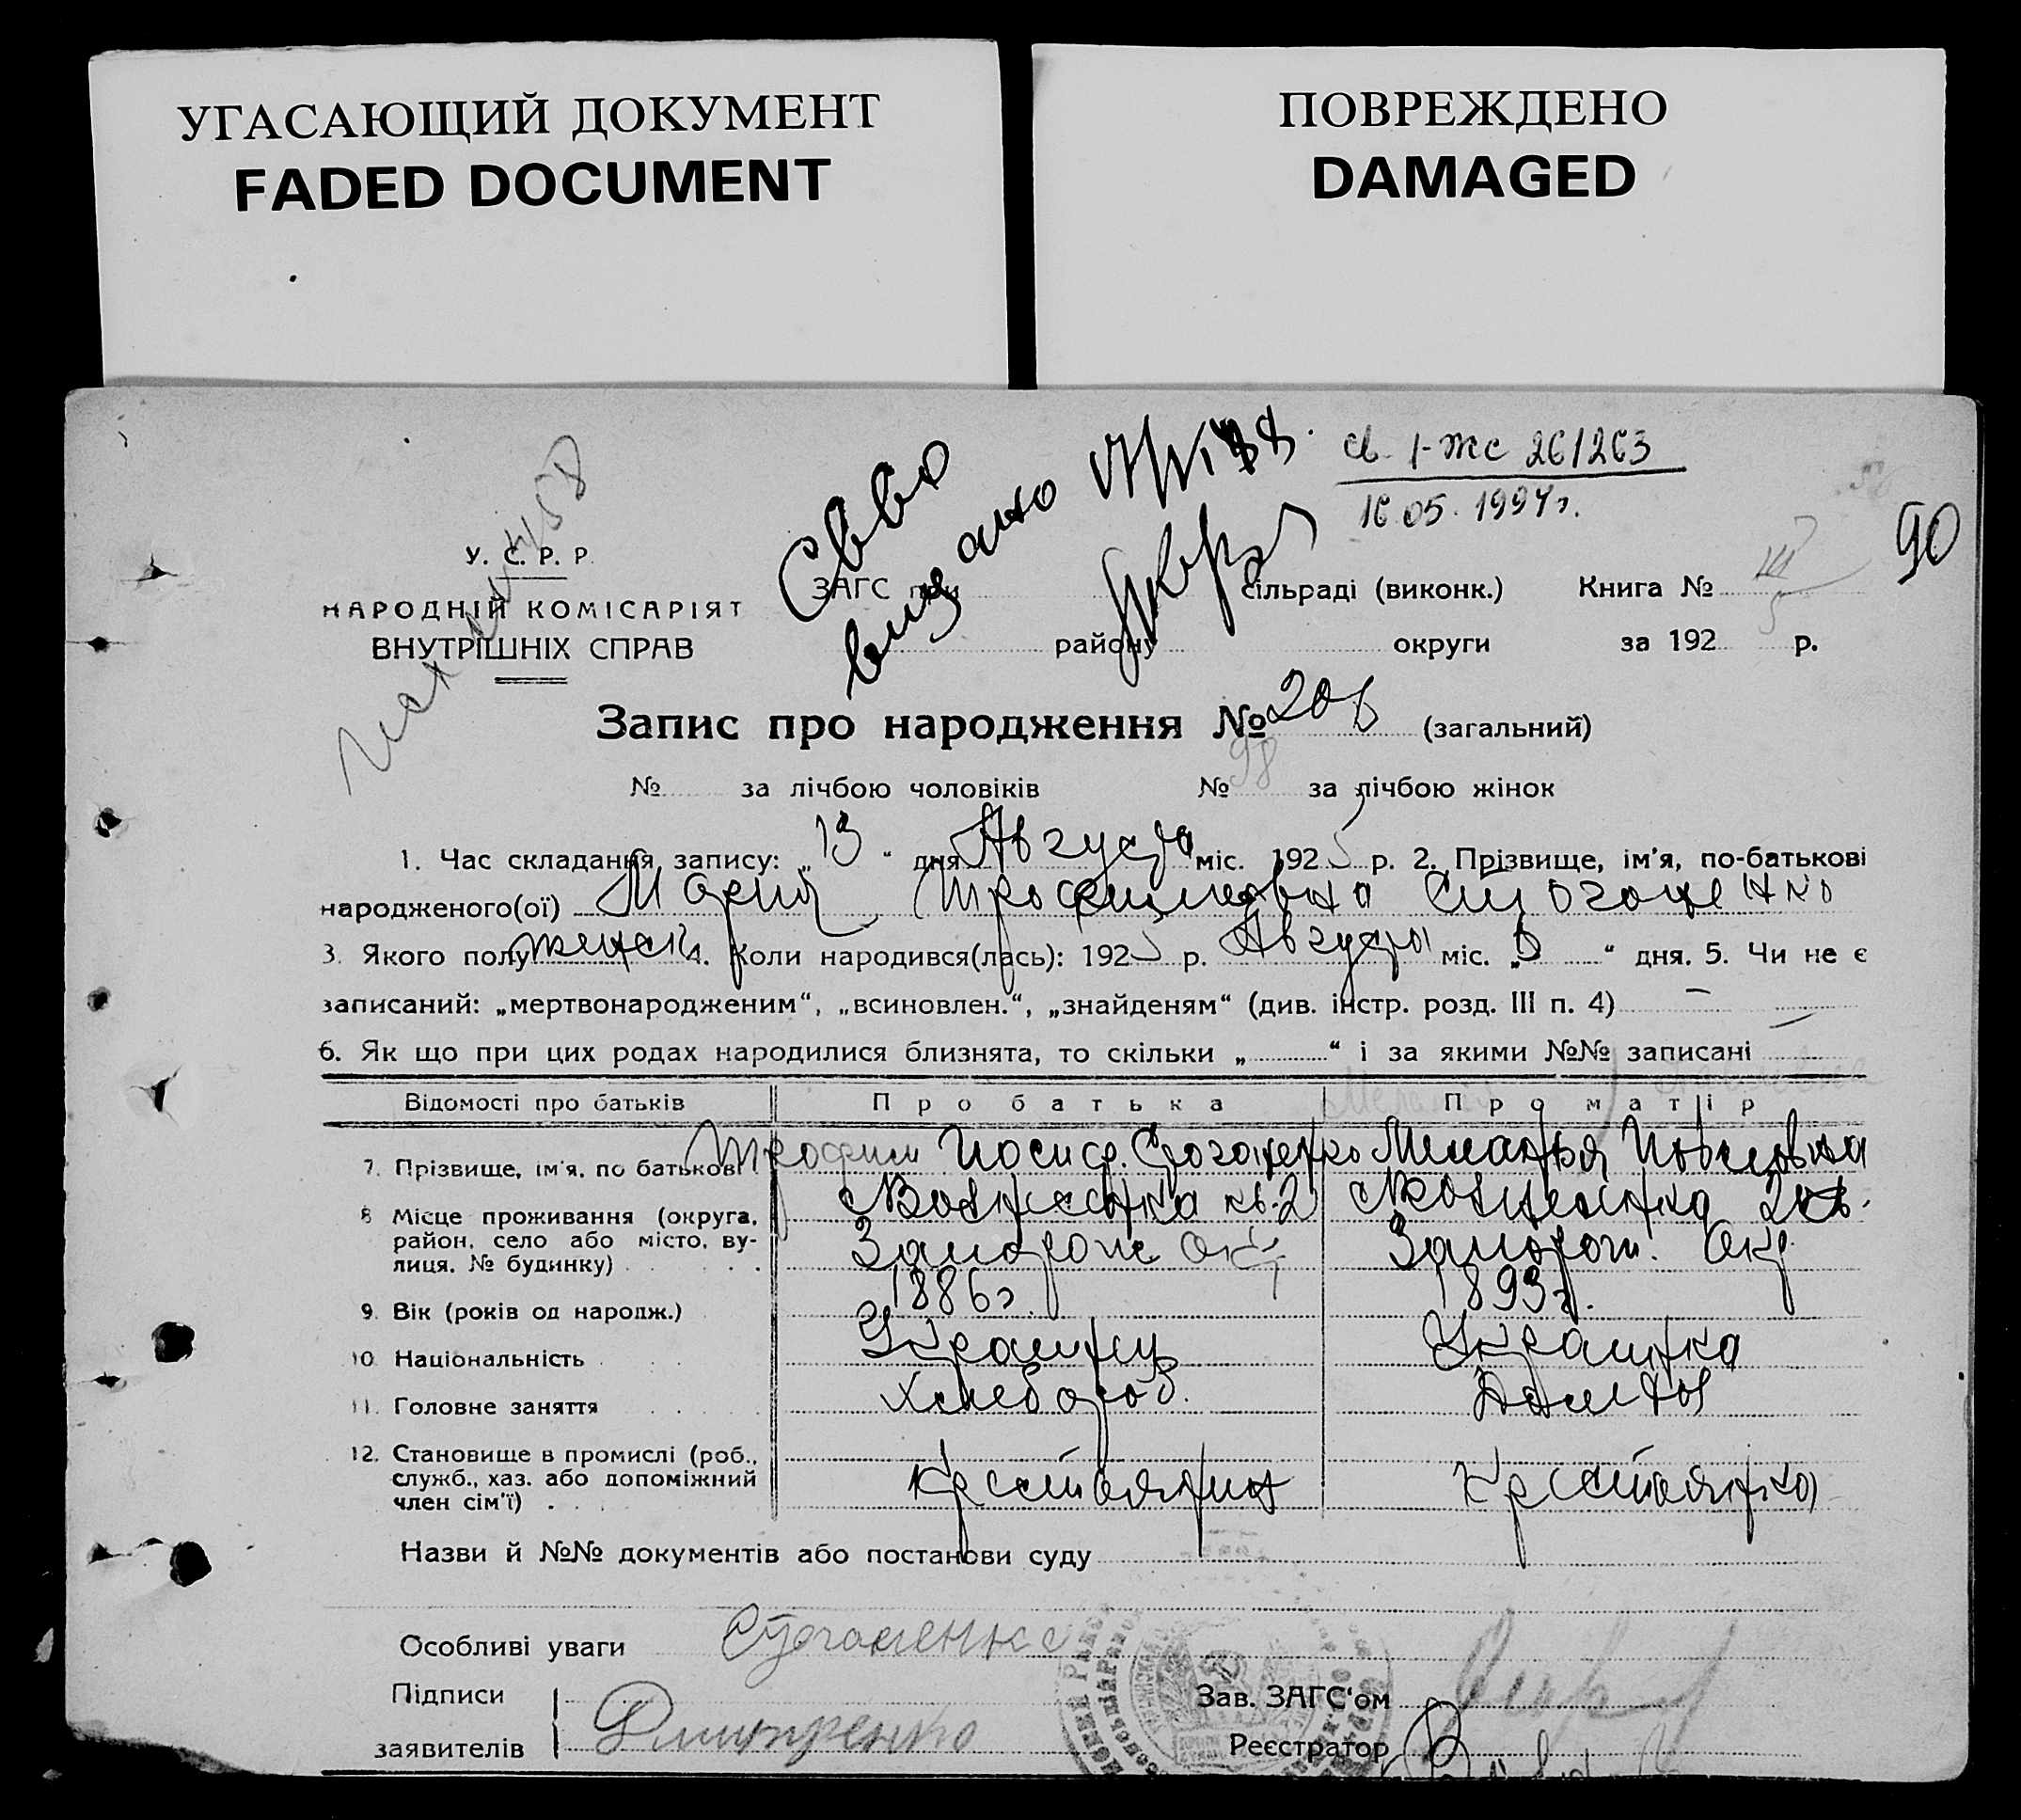 УГАСАЮЩИЙ ДОКУМЕНТ
FADED DOCUMENT
ПОВРЕЖДЕНО
DAMAGED
св. I-ЖС 261263
16.05.1994г.
90
У. С. Р. Р.
НАРОДНІЙ КОМІСАРІЯТ
ВНУТРІШНІХ СПРАВ
ЗАГС при сільраді (виконк.) Книга № III
району округи за 1925 р.
Запис про народження № 208 (загальний)
№ за лічбою чоловіків № 98 за лічбою жінок
1. Час складання запису: „13“ дня Августа міс. 1925 р. 2. Прізвище, ім'я, по-батькові
народженого(ої) Мария Трофимовна
3. Якого полу женск 4. Коли народився(лась): 1925 р. Августа міс. „ “ дня. 5. Чи не є
записаний: „мертвонародженим“, „всиновлен.“, „знайденям“ (див. інстр. розд. III п. 4) –
6. Як що при цих родах народилися близнята, то скільки „ “ і за якими №№ записані
Відомості про батьків Про батька Про матір
7. Прізвище, ім'я, по батькові Трофим Иосиф. Меланья Павловна
8 Місце проживання (округа, район, село або місто, вулиця, № будинку) Вознесенка кв. 2 Вознесенка
Запорож Окр Запорож. Окр
9. Вік (років од народж.) 1886г. 1893г.
10 Національність Украинец Украинка
11. Головне заняття Хлебороб.
12. Становище в промислі (роб., служб., хаз. або допоміжний член сім'ї) Крестьянин Крестьянка
Назви й №№ документів або постанови суду
Особливі уваги
Підписи
заявителів Дмитренко
Зав. ЗАГС'ом
Реєстратор